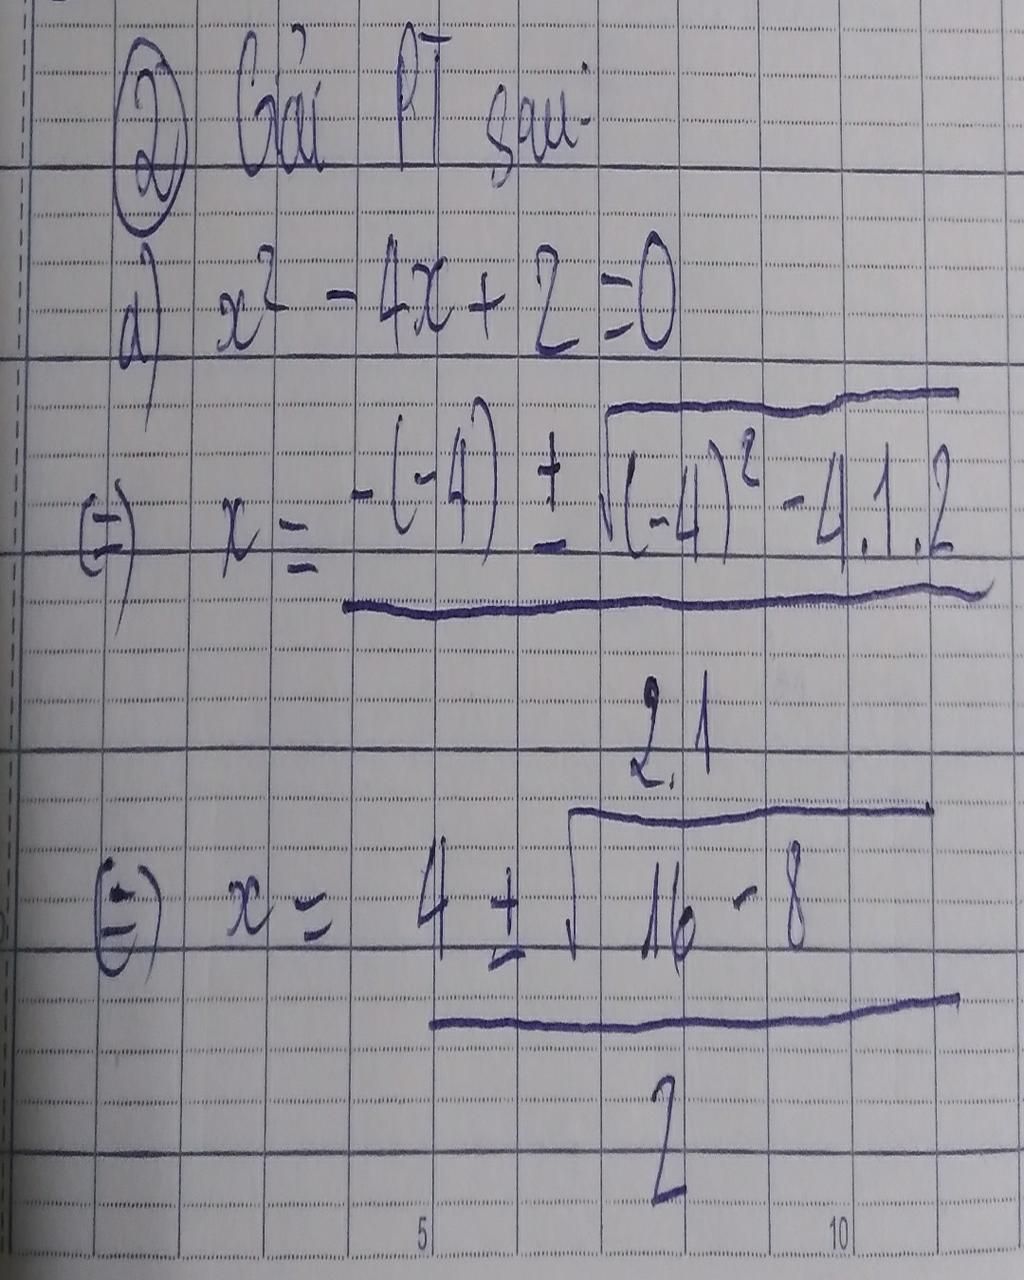 ② Giải PT sau:
a) x² - 4x + 2 = 0
(=) x = -(-4) ± √(-4)² - 4.1.2
2.1
(=) x = 4 ± √16 - 8
2
5 10